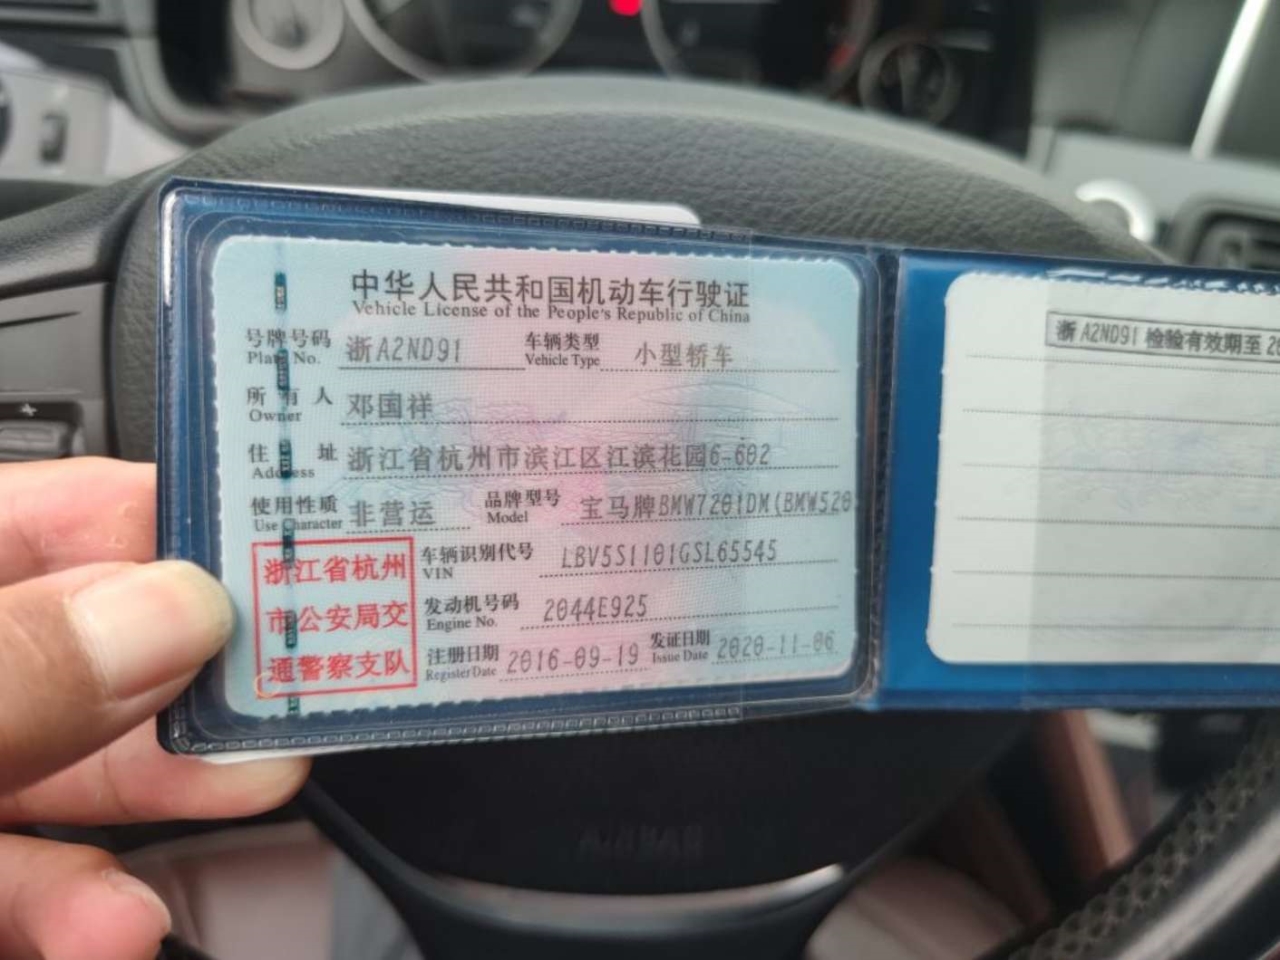 中华人民共和国机动车行驶证
Vehicle License of the People's Republic of China
号牌号码 浙A2ND91 车辆类型 小型轿车
Plate No. Vehicle Type
所有人 邓国祥
Owner
住址 浙江省杭州市滨江区江滨花园6-602
Address
使用性质 非营运 品牌型号 宝马牌BMW7201DM(BMW520
Use Character Model
浙江省杭州
市公安局交
通警察支队
车辆识别代号 LBV5S1101GSL65545
VIN
发动机号码 2044E925
Engine No.
注册日期 2016-09-19 发证日期 2020-11-06
Register Date Issue Date
浙A2ND91 检验有效期至 20
AIRBAG